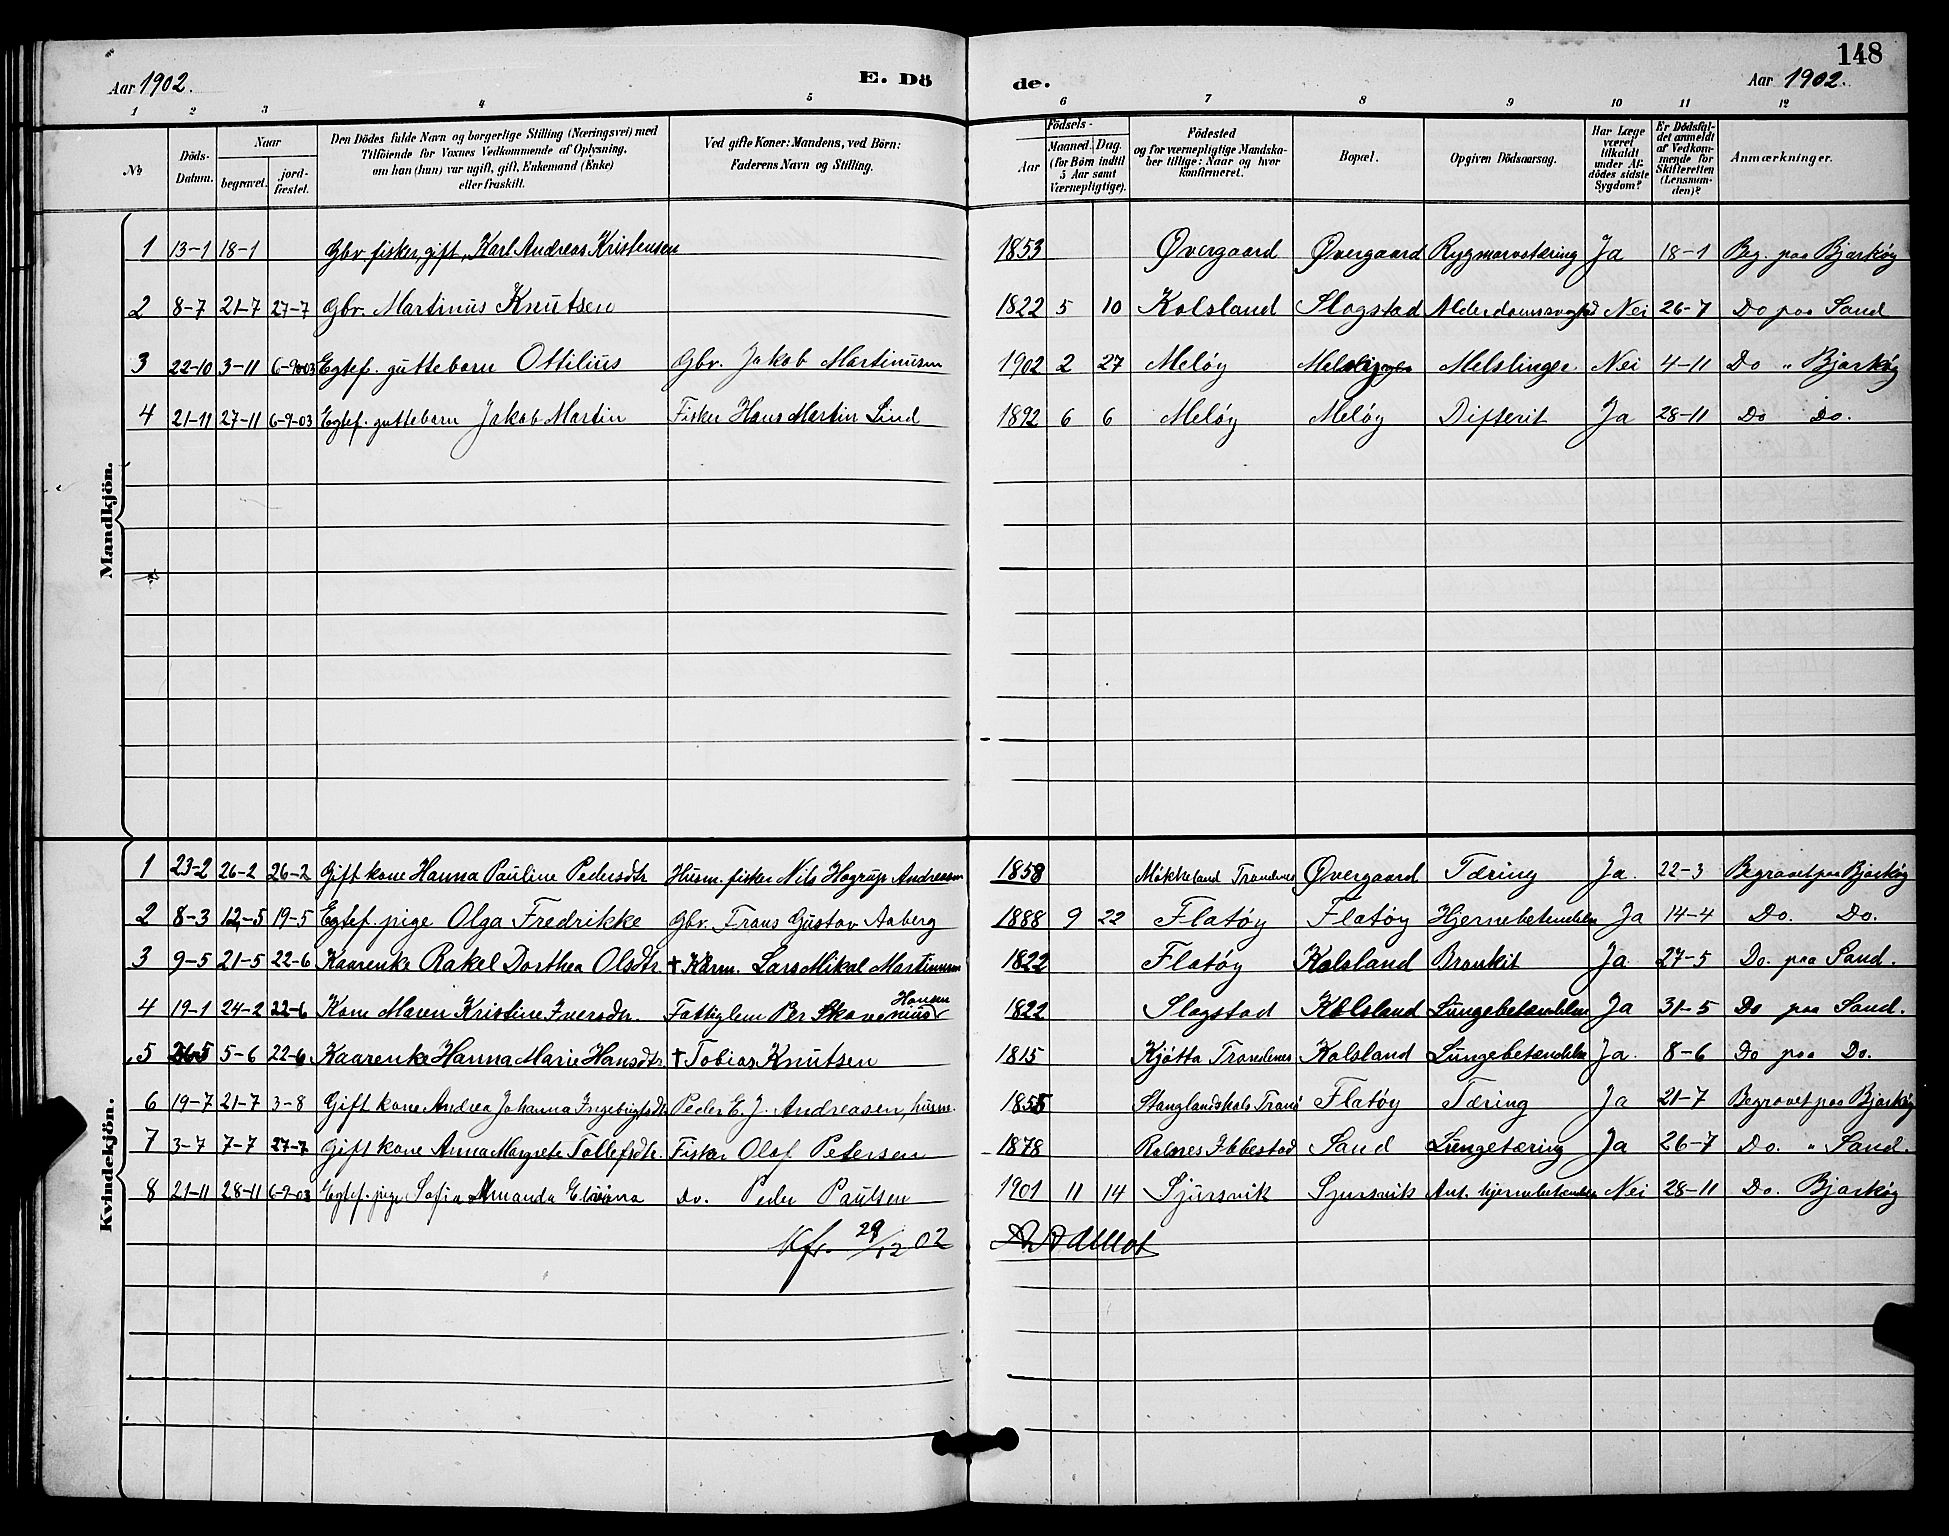 148
Aar 1902. E. Dö de. Aar 1902.
1 2 3 4 5 6 7 8 9 10 11 12
№ Döds-Datum. Naar begravet. jord-fæstet. Den Dödes fulde Navn og borgerlige Stilling (Næringsvei) med Tilföiende for Voxnes Vedkommende af Oplysning, om han (hun) var ugift, gift, Enkemand (Enke) eller fraskilt. Ved gifte Koner: Mandens, ved Börn: Faderens Navn og Stilling. Födsels- Aar Maaned. Dag. (for Börn indtil 5 Aar samt Værnepligtige). Födested og for værnepligtige Mandskaber tillige: Naar og hvor konfirmeret. Bopæl. Opgiven Dödsaarsag. Har Læge været tilkaldt under Afdödes sidste Sygdom? Er Dödsfaldet anmeldt af Vedkommende for Skifteretten (Lensmanden)? Anmærkninger.
Mandkjön.
1 13-1 18-1 Gbr. fisker, gift, Karl Andreas Kristensen 1853 Øvergaard Øvergaard Rygmarvstæring Ja 18-1 Beg. paa Bjarkøy
2 8-7 21-7 27-7 Gbr. Martinus Knutsen 1822 5 10 Kolsland Slagstad Alderdomssvaghed Nei 26-7 Do paa Sand
3 22-10 3-11 6-9-03 Egtef. guttebarn Ottilius Gbr. Jakob Martinusen 1902 2 27 Meløy Melslinger Nei 4-11 Do " Bjarkøy
4 21-11 27-11 6-9-03 Egtef. guttebarn Jakob Martin Fisker Hans Martin Lind 1892 6 6 Meløy Meløy Difterit Ja 28-11 Do Do.
Kvindekjön.
1 23-2 26-2 26-2 Gift kone Hanna Pauline Pedersdtr Husm. fisker Nils Hagrup Andreassen 1858 Mikkeland Trondenes Øvergaard Tæring Ja. 22-3 Begravet paa Bjarkøy
2 8-3 12-5 19-5 Egtef. pige Olga Fredrikke Gbr. Frans Gustav Aaberg 1888 9 22 Flatøy Flatøy Hjernebetændelse Ja 14-4 Do. Do.
3 9-5 21-5 22-6 Kaarenke Rakel Dorthea Olsdtr. † Kårm. Lars Mikal Martinusen 1822 Flatøy Kolsland Bronkit Ja 27-5 Do. paa Sand.
4 19-1 24-2 22-6 Kone Maren Kristine Iversdtr. Fattiglem Per Hansen 1822 Slagstad Kolsland Lungebetændelse Ja 31-5 Do paa Sand.
5 26-5 5-6 22-6 Kaarenke Hanna Marie Hansdtr † Tobias Knutsen 1815 Kjøtta Trondenes Kolsland Lungebetændelse Ja. 8-6 Do paa Do.
6 19-7 21-7 3-8 Gift kone Andrea Johanna Ingebrigtsdtr Peder E. J. Andreasen, husm. 1855 Stanglandshals Tranø Flatøy Tæring Ja 21-7 Begravet paa Bjarkøy
7 3-7 7-7 27-7 Gift kone Anna Margrete Tollefsdtr. Fisker Olaf Petersen 1878 Rolnes Ibbestad Sand Lungetæring Ja 26-7 Do. " Sand.
8 21-11 28-11 6-9-03 Egtef. pige Sofia Amanda Do. Peder Paulsen 1901 11 14 Sjursvik Sjursvik Ant. hjernebetændelse Nei 28-11 Do. Bjarkøy
Kfr. 29/12 02